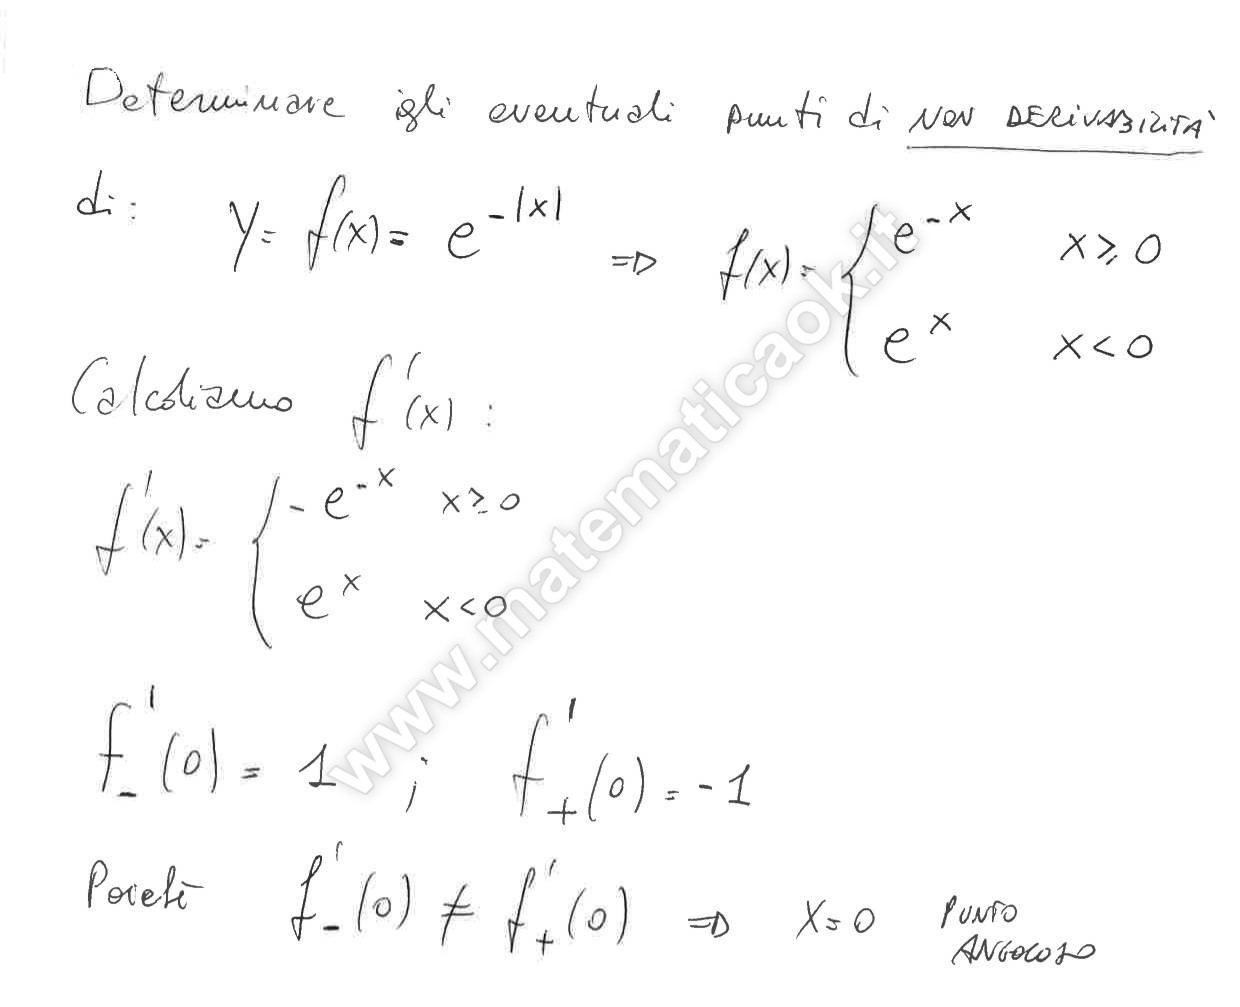 Determinare gli eventuali punti di NON DERIVABILITA'
di: y = f(x) = e^{-|x|} ⇒ f(x) = { e^{-x} x ≥ 0
e^{x} x < 0
Calcoliamo f'(x) :
f'(x) = { -e^{-x} x ≥ 0
e^{x} x < 0
f'_-(0) = 1 ; f'_+(0) = -1
Poiché f'_-(0) ≠ f'_+(0) ⇒ x = 0 PUNTO
ANGOLOSO
www.matematicaok.it